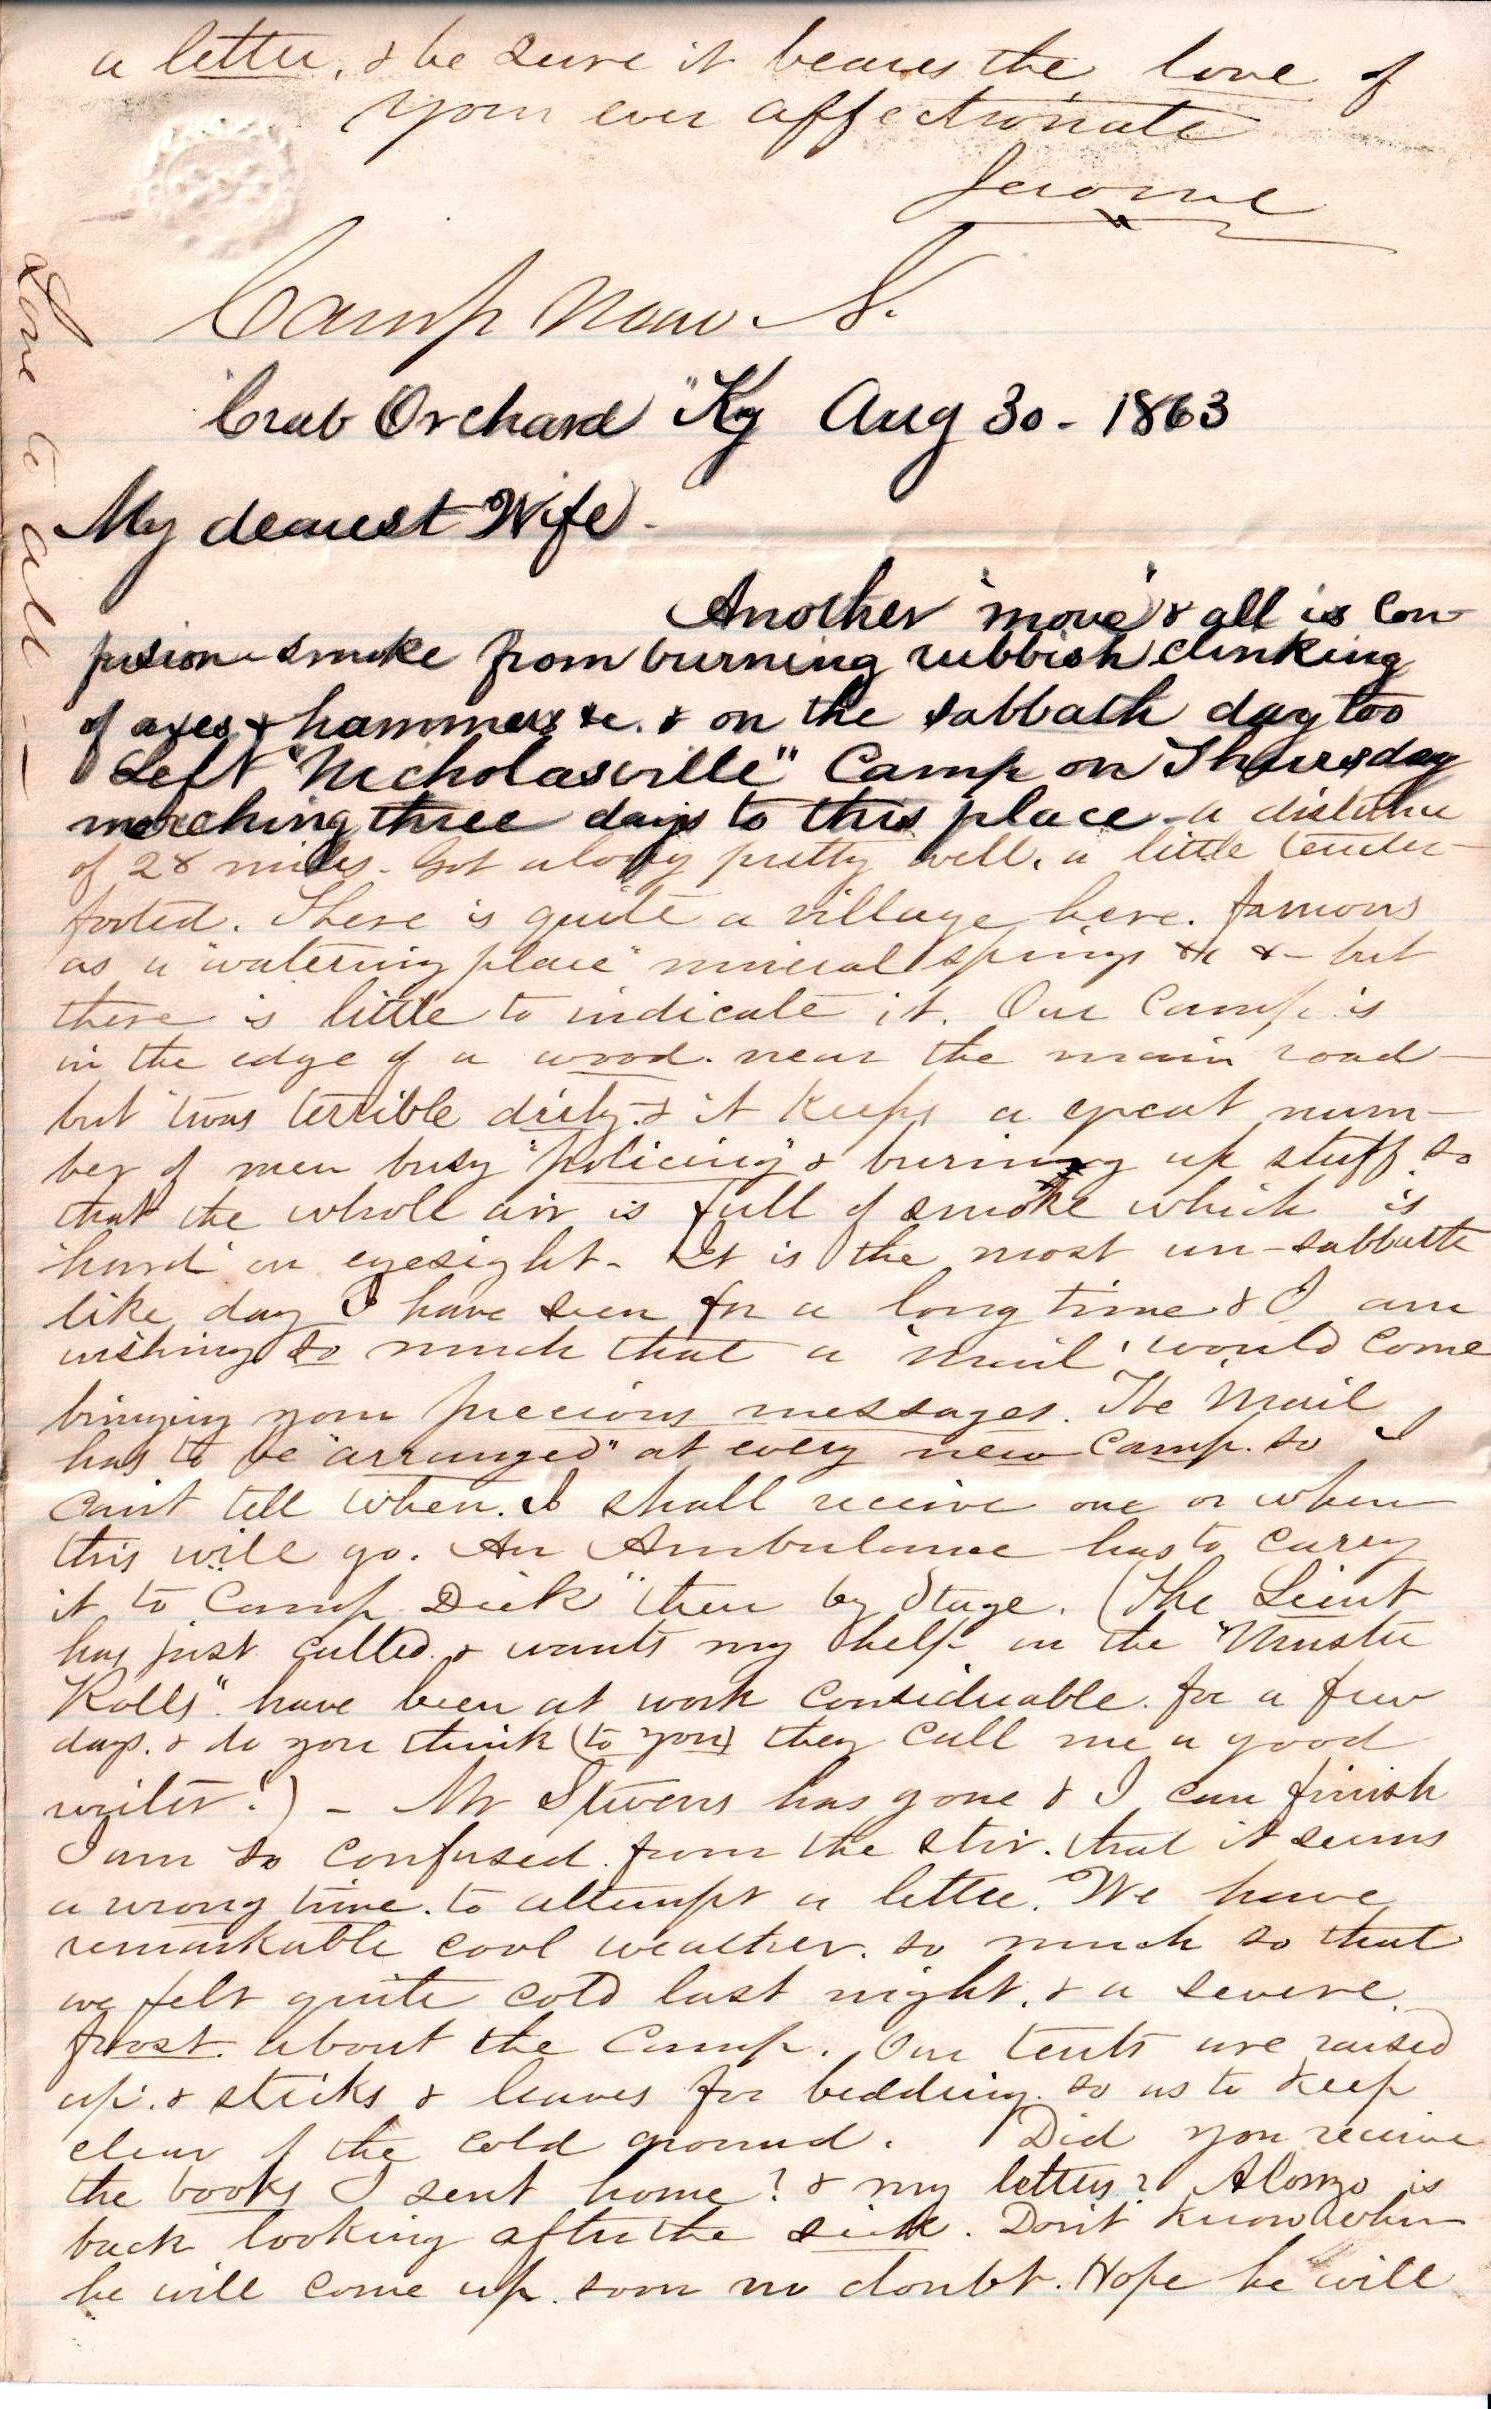 a letter, & be sure it bears the love of
your ever affectionate
Jerome
Camp Near
Crab Orchard "Ky Aug 30 - 1863
My dearest Wife -
Another 'move' & all is con-
fusion - smoke from burning rubbish clinking
of axes & hammers &c. & on the sabbath day too
Left "Nicholasville" Camp on Thursday
marching three days to this place - a distance
of 28 miles - Got along pretty well, a little tender-
footed. There is quite a village here. famous
as a "watering place" mineral springs &c & - but
there is little to indicate it. Our Camp is
in the edge of a wood. near the main road -
but 'twas terrible dirty - & it keeps a great num-
ber of men busy "policing" & burning up stuff so
that the whole air is full of smoke which is
'hard' on eyesight - It is the most un-sabbath
like day I have seen for a long time & I am
wishing so much that a 'mail' would come
bringing your precious messages. The Mail
has to be "arranged" at every new Camp. so I
cant tell when I shall receive one or when
this will go. An Ambulance has to carry
it to Camp Dick" then by Stage. (The Lieut
has just called & wants my help on the "Muster
Rolls". have been at work considerable for a few
days. & do you think (to you) they call me a good
writer!) - Mr Stevens has gone & I can finish
I am so confused from the stir. that it seems
a wrong time. to attempt a letter. We have
remarkable cool weather. so much so that
we felt quite cold last night. & a severe
frost about the Camp. Our tents are raised
up. & sticks & leaves for bedding. so as to keep
clear of the cold ground. Did you receive
the books I sent home? & my letters? Alonzo is
back looking after the sick. Don't know when
he will come up. soon no doubt. Hope he will
Love to all -